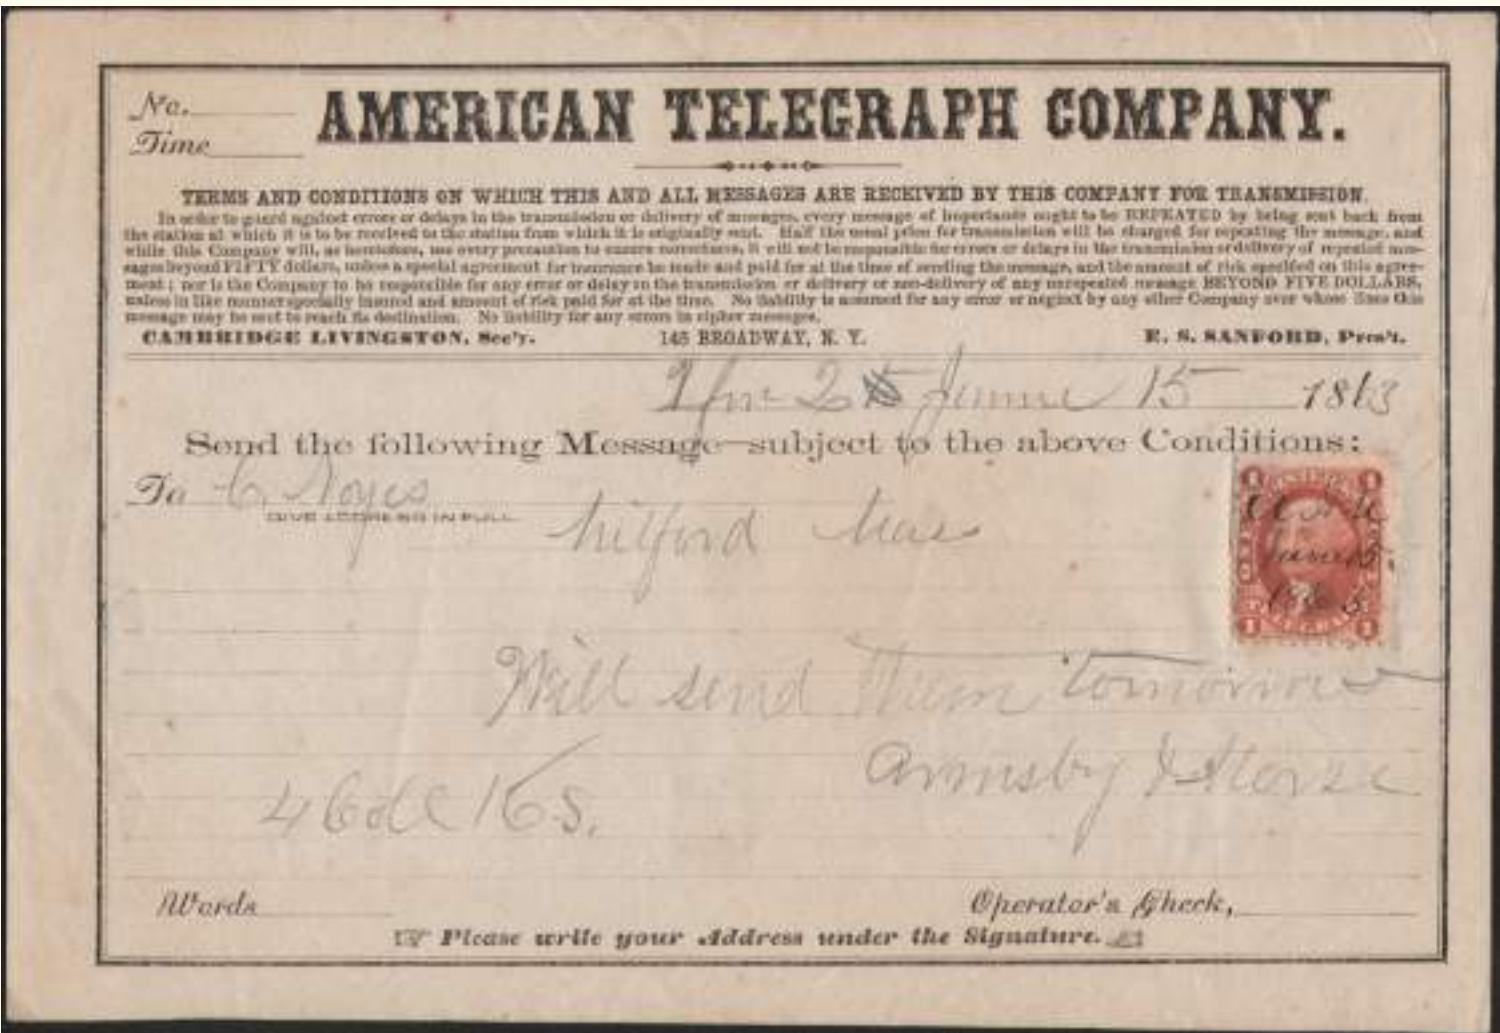 No.
Time
AMERICAN TELEGRAPH COMPANY.
TERMS AND CONDITIONS ON WHICH THIS AND ALL MESSAGES ARE RECEIVED BY THIS COMPANY FOR TRANSMISSION.
In order to guard against errors or delays in the transmission or delivery of messages, every message of importance ought to be REPEATED by being sent back from
the station at which it is to be received to the station from which it is originally sent. Half the usual price for transmission will be charged for repeating the message, and
while this Company will, as heretofore, use every precaution to ensure correctness, it will not be responsible for errors or delays in the transmission or delivery of repeated mes-
sages beyond FIFTY dollars, unless a special agreement for insurance be made and paid for at the time of sending the message, and the amount of risk specified on this agree-
ment; nor is the Company to be responsible for any error or delay in the transmission or delivery or non-delivery of any unrepeated message BEYOND FIVE DOLLARS,
unless in like manner specially insured and amount of risk paid for at the time. No liability is assumed for any error or neglect by any other Company over whose lines this
message may be sent to reach its destination. No liability for any errors in cipher messages.
CAMBRIDGE LIVINGSTON, Sec'y. 145 BROADWAY, N. Y. E. S. SANFORD, Pres't.
June 15 1863
Send the following Message subject to the above Conditions:
To C. Noyes
GIVE ADDRESS IN FULL
Milford Mass
1 1
June 15
1 1
Will send them tomorrow
Armsby & Morse
Words
Operator's Check,
Please write your Address under the Signature.